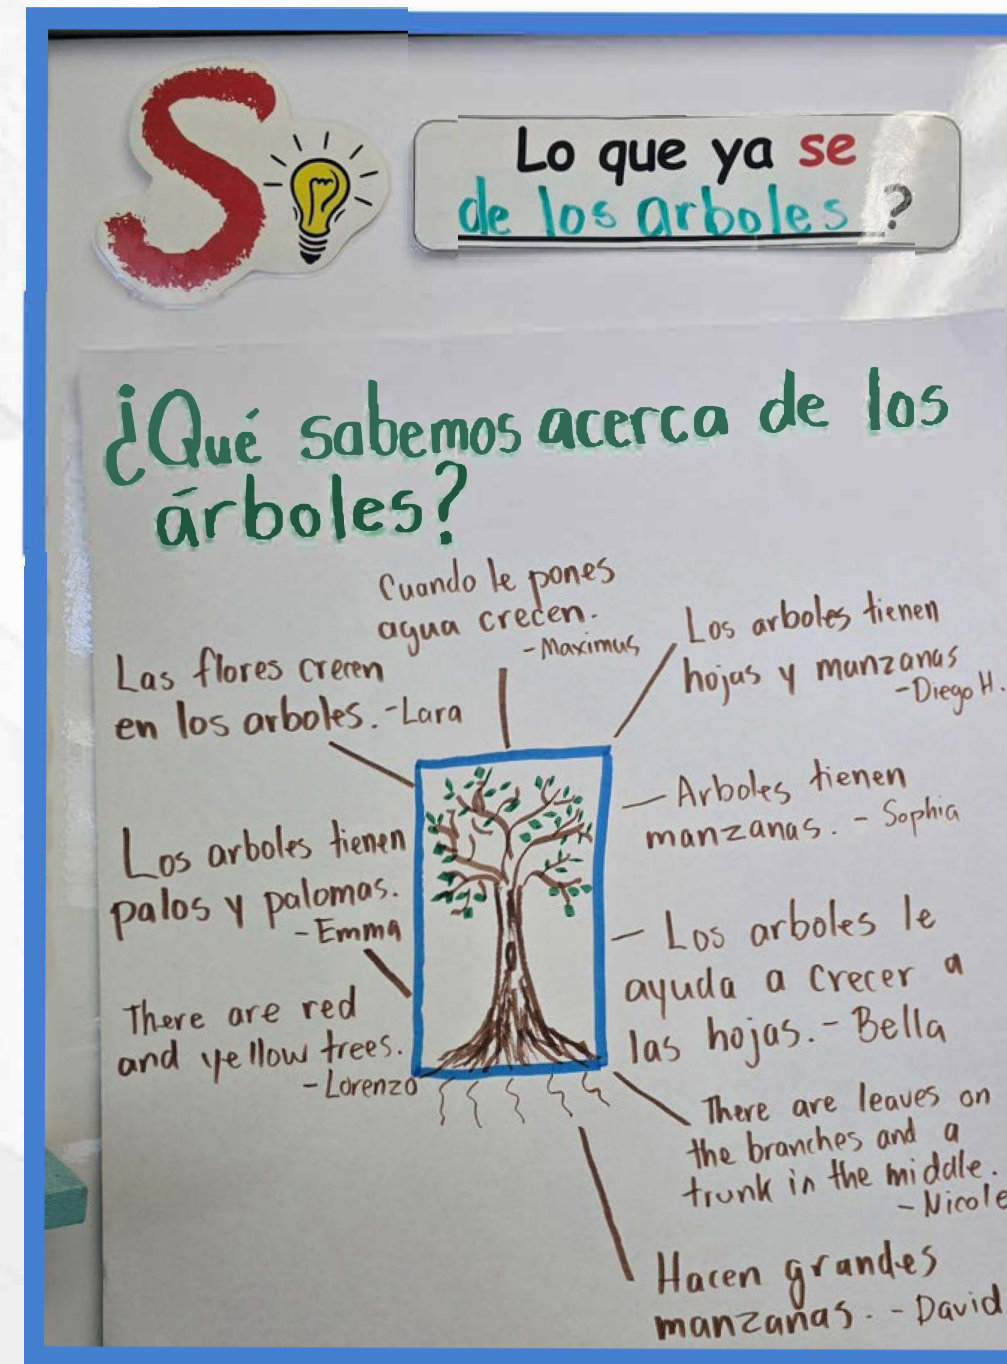 S
Lo que ya se
de los arboles ?
¿Qué sabemos acerca de los
árboles?
Cuando le pones
agua crecen.
-Maximus
Las flores crecen
en los arboles.-Lara
Los arboles tienen
hojas y manzanas
-Diego H.
Arboles tienen
manzanas. - Sophia
Los arboles tienen
palos y palomas.
-Emma
Los arboles le
ayuda a crecer a
las hojas.- Bella
There are red
and yellow trees.
-Lorenzo
There are leaves on
the branches and a
trunk in the middle.
- Nicole
Hacen grandes
manzanas. - David